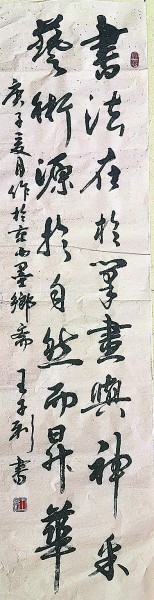 書法在於筆畫與神采
藝術源於自然而昇華
庚子夏月作於京西墨鄉齋 王子利書